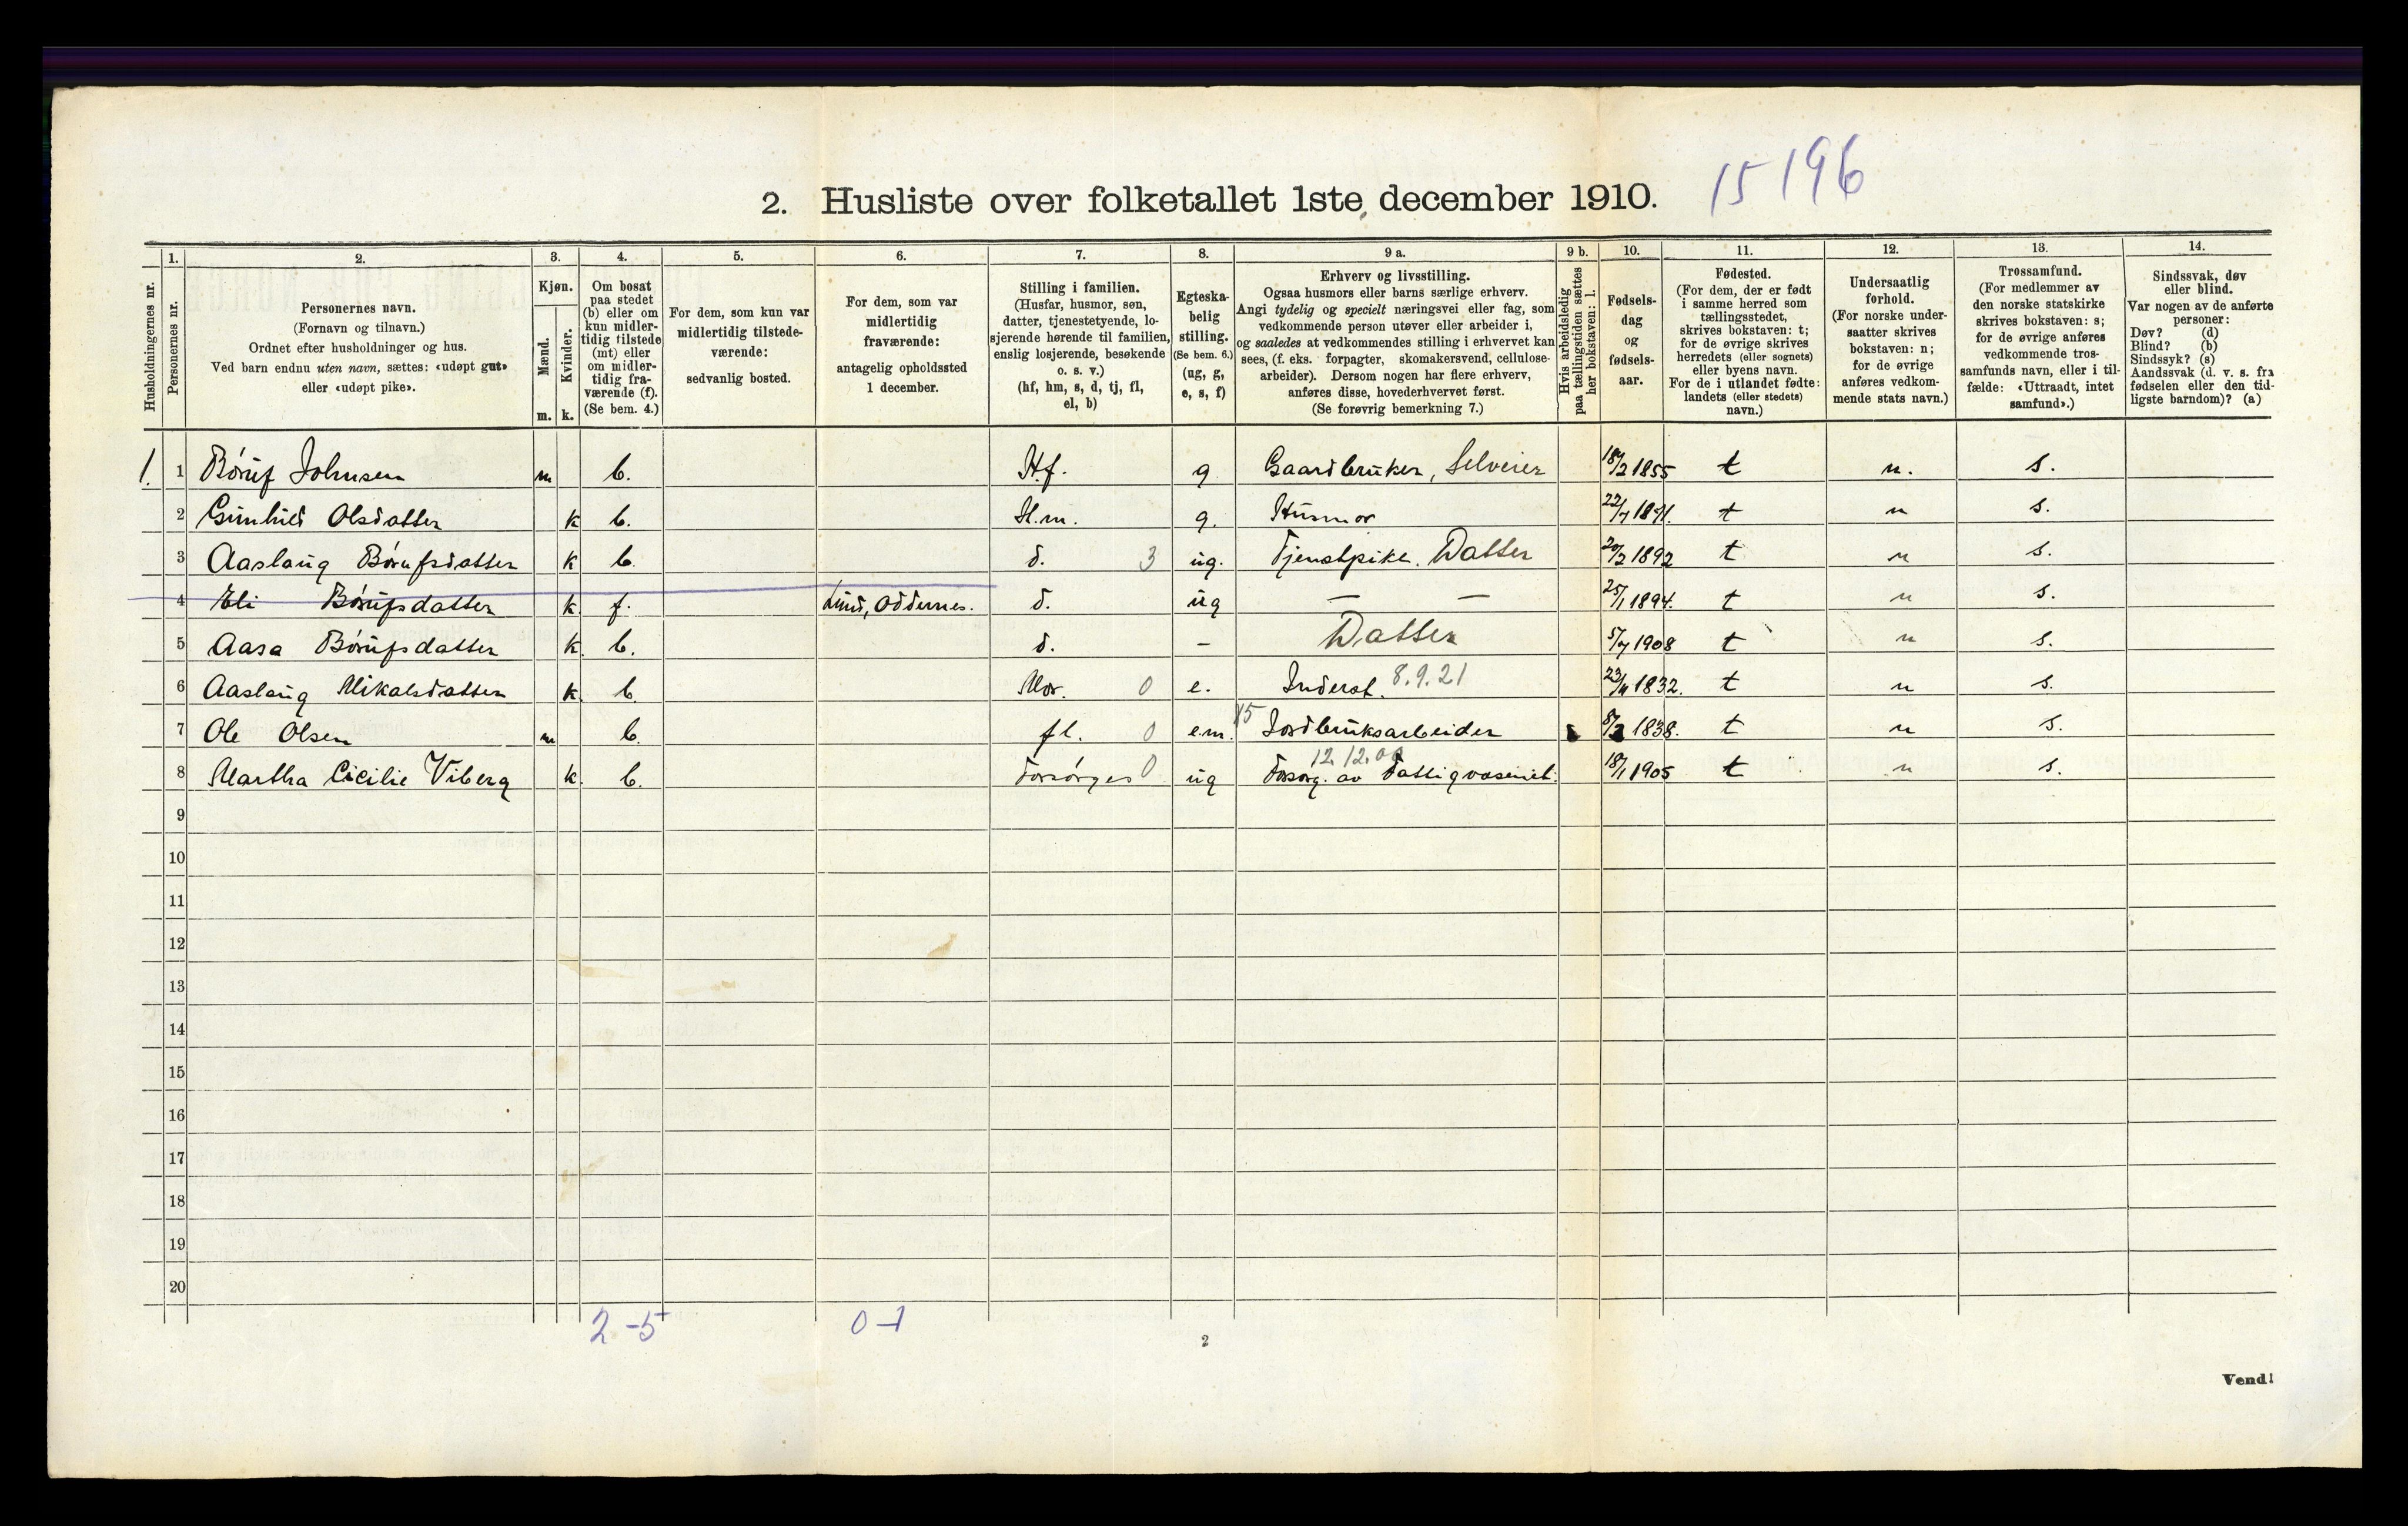 15 196
2. Husliste over folketallet 1ste december 1910.
Husholdningernes nr.
1.
Personernes nr.
2.
Personernes navn.
(Fornavn og tilnavn.)
Ordnet efter husholdninger og hus.
Ved barn endnu uten navn, sættes: «udøpt gut»
eller «udøpt pike».
3.
Kjøn.
Mænd.
Kvinder.
m. k.
4.
Om bosat
paa stedet
(b) eller om
kun midler-
tidig tilstede
(mt) eller
om midler-
tidig fra-
værende (f).
(Se bem. 4.)
5.
For dem, som kun var
midlertidig tilstede-
værende:
sedvanlig bosted.
6.
For dem, som var
midlertidig
fraværende:
antagelig opholdssted
1 december.
7.
Stilling i familien.
(Husfar, husmor, søn,
datter, tjenestetyende, lo-
sjerende hørende til familien,
enslig losjerende, besøkende
o. s. v.)
(hf, hm, s, d, tj, fl,
el, b)
8.
Egteska-
belig
stilling.
(Se bem. 6.)
(ug, g,
e, s, f)
9 a.
Erhverv og livsstilling.
Ogsaa husmors eller barns særlige erhverv.
Angi tydelig og specielt næringsvei eller fag, som
vedkommende person utøver eller arbeider i,
og saaledes at vedkommendes stilling i erhvervet kan
sees, (f. eks. forpagter, skomakersvend, cellulose-
arbeider). Dersom nogen har flere erhverv,
anføres disse, hovederhvervet først.
(Se forøvrig bemerkning 7.)
9 b.
Hvis arbeidsledig
paa tællingstiden sættes
her bokstaven: l.
10.
Fødsels-
dag
og
fødsels-
aar.
11.
Fødested.
(For dem, der er født
i samme herred som
tællingsstedet,
skrives bokstaven: t;
for de øvrige skrives
herredets (eller sognets)
eller byens navn.
For de i utlandet fødte:
landets (eller stedets)
navn.)
12.
Undersaatlig
forhold.
(For norske under-
saatter skrives
bokstaven: n;
for de øvrige
anføres vedkom-
mende stats navn.)
13.
Trossamfund.
(For medlemmer av
den norske statskirke
skrives bokstaven: s;
for de øvrige anføres
vedkommende tros-
samfunds navn, eller i til-
fælde: «Uttraadt, intet
samfund».)
14.
Sindssvak, døv
eller blind.
Var nogen av de anførte
personer:
Døv? (d)
Blind? (b)
Sindssyk? (s)
Aandssvak (d. v. s. fra
fødselen eller den tid-
ligste barndom)? (a)
1. 1 Börúf Johnsen m b. H.f. g Gaardbrúker, Selveier 18/2 1855 t n. s.
2 Gúnhild Olsdatter k b. H.m. g. Húsmor 22/7 1871. t n s.
3 Aaslaúg Börúfsdatter k b. d. 3 úg. Tjenstpike. Datter 20/2 1892 t n s.
4 Eli Börúfsdatter k. f. Lúnd, Oddernes. d. úg — — 25/1 1894. t n s.
5 Aasa Börúfsdatter k. b. d. – Datter 5/7 1908 t n s.
6 Aaslaúg Mikalsdatter k. b. Mor. 0 e. Inderst. 8.9.21 23/11 1832. t n s.
7 Ole Olsen m b. fl. 0 e.m. 15 Jordbrúksarbeider 8/2 1838. t n s.
12.12.00
8 Martha Cicilie Viberg k. b. Forsörges 0 úg Forsörg. av Fattigvæsenet. 18/1 1905 t n s.
9
10
11
12
13
14
15
16
17
18
19
20
2 - 5 0 - 1
2
Vend!